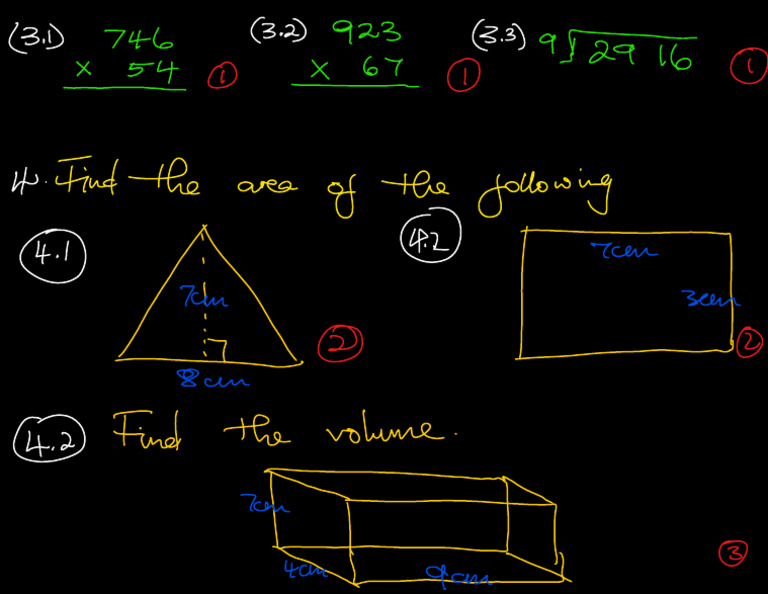 (3.1) 746
x 54 ①
(3.2) 923
x 67 ①
(3.3) 9√2916 ①
4. Find the area of the following
4.1
7cm
8cm
②
4.2
7cm
3cm
②
4.2 Find the volume.
7cm
4cm
③